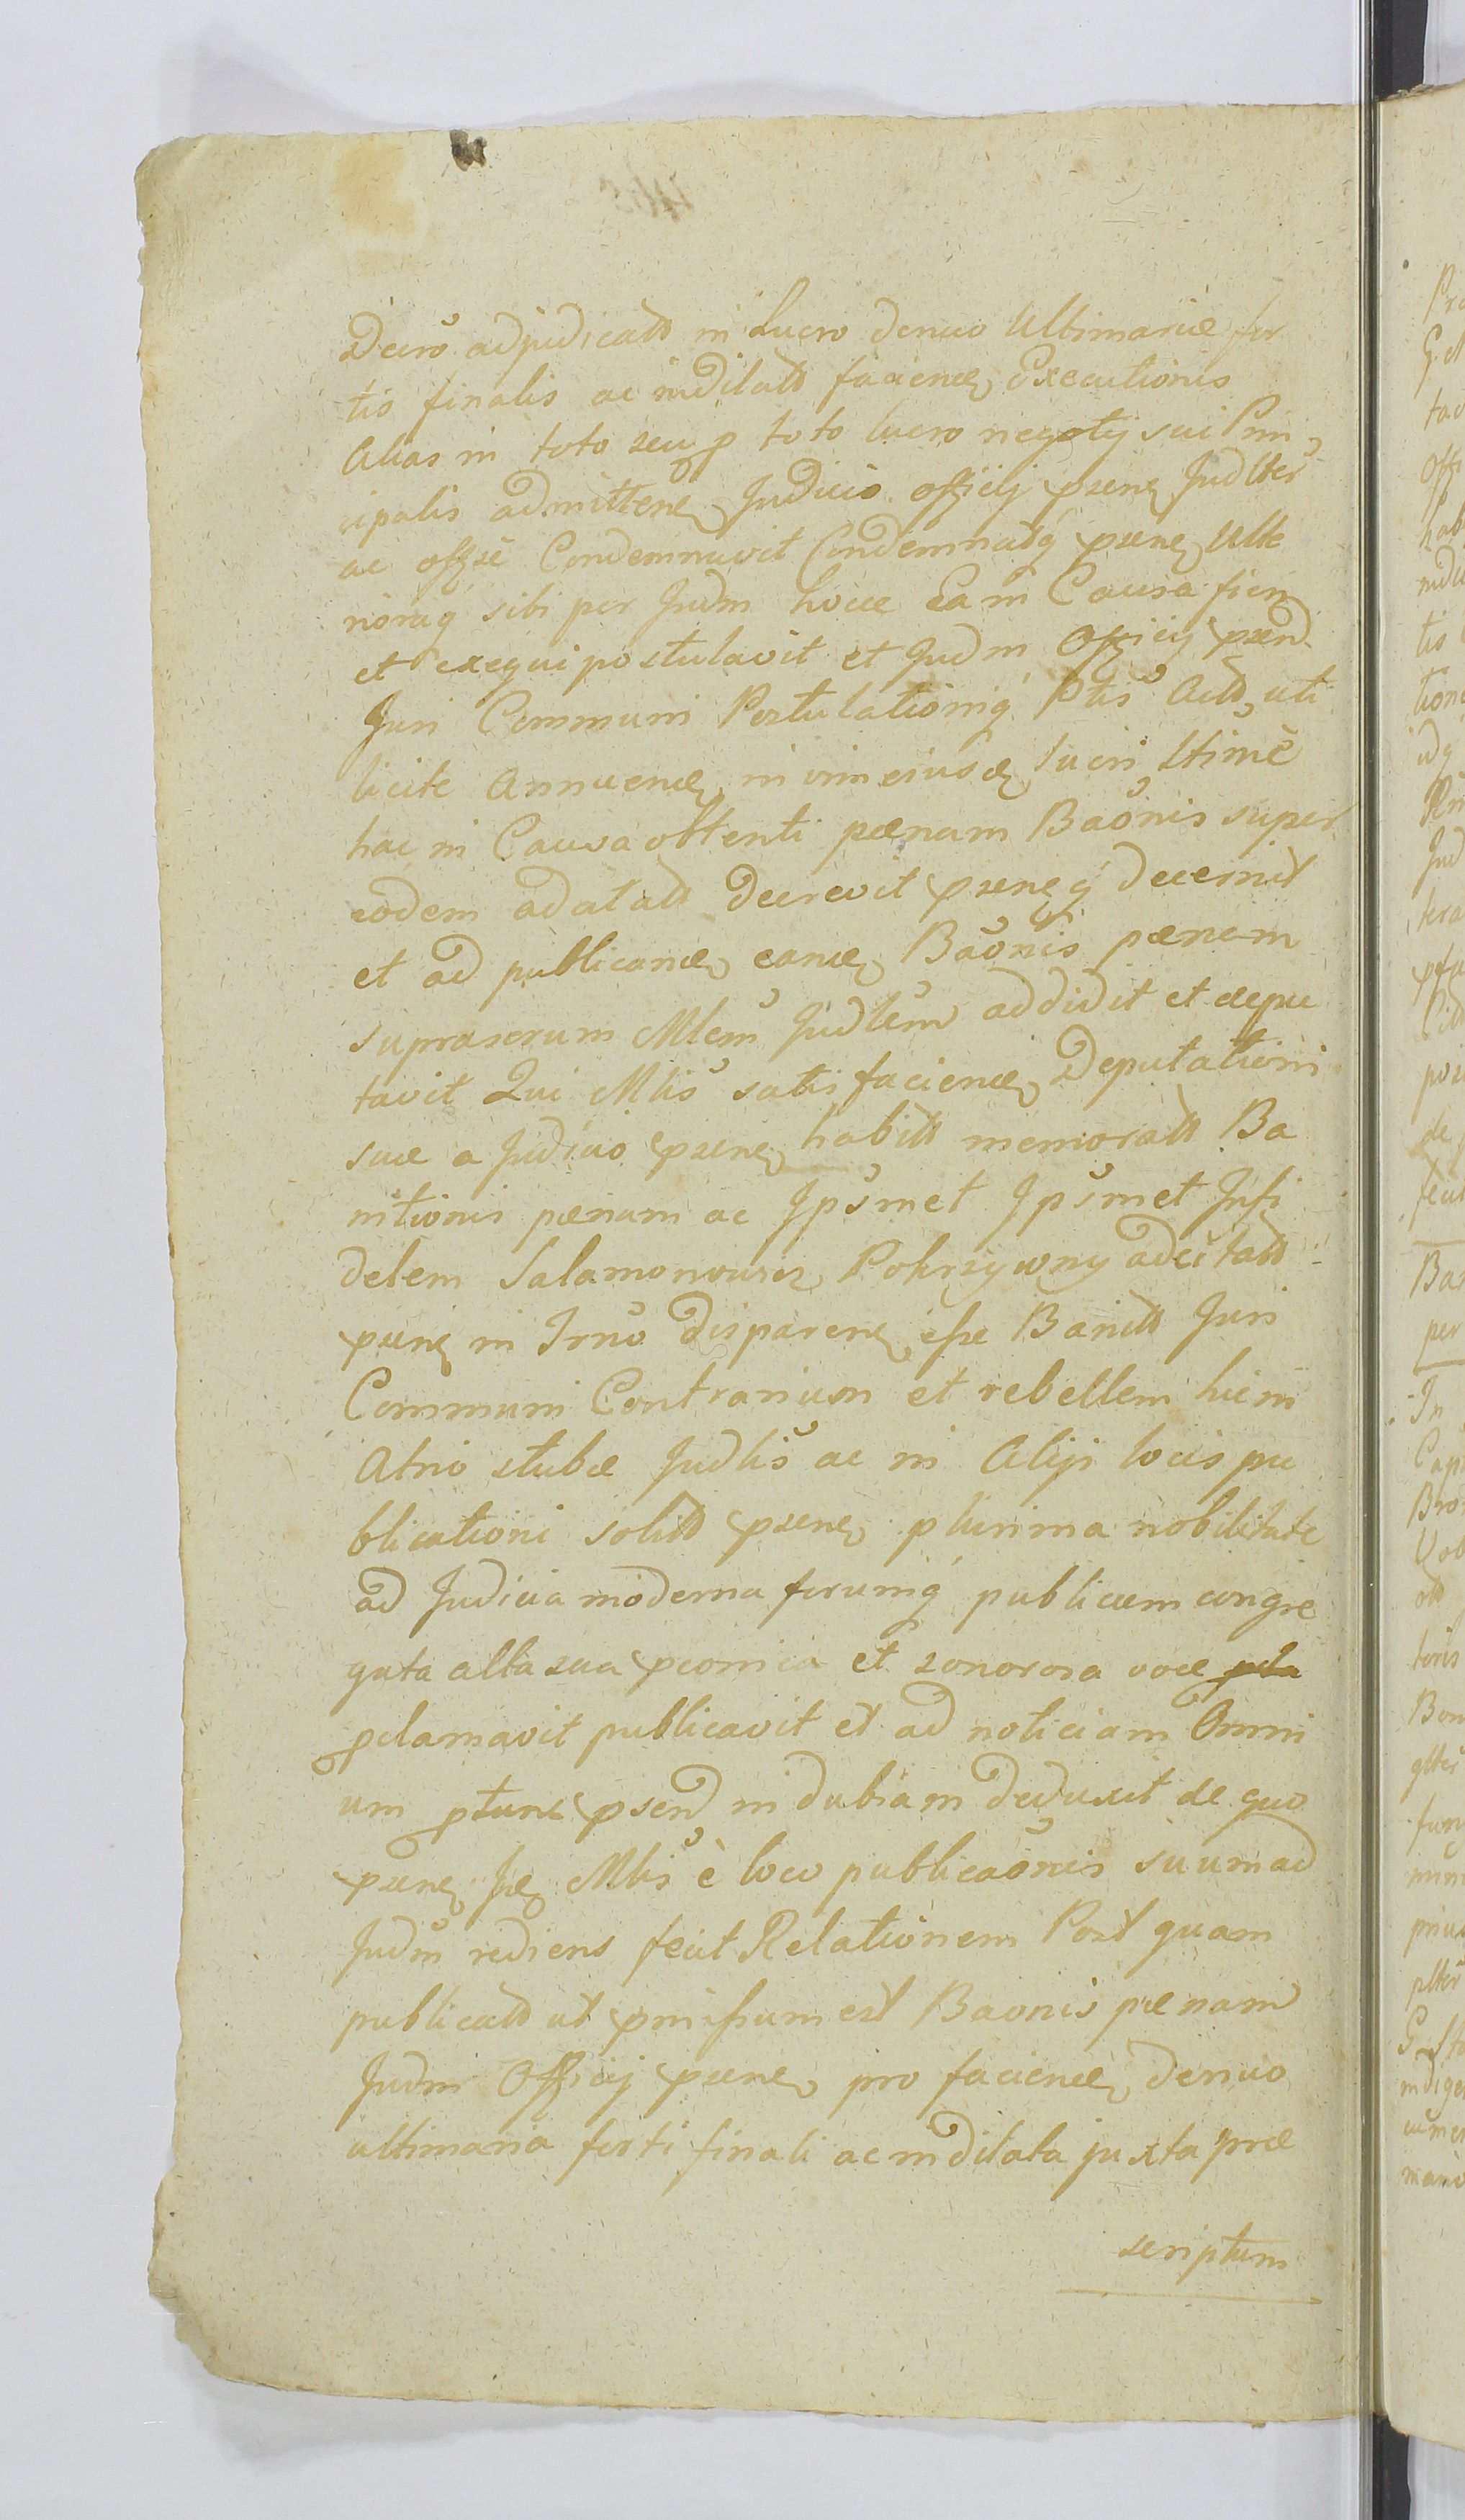 Decro adjudicatt in Lucro denuo Ultimariæ for
tis finalis ac indilatt faciend Executionis
Alias in toto seu p toto lucro negotij sui Prin
cipalis admitten Judicio officij psen Judlter
ac offse Condemnavit Condemnatq psen Ulte
rioraq sibi per Judm hocce Ea in Causa fieri
et exequi postulavit et Judm Officij psend
Juri Communi Postulationiq Ptis Actt, uti
licite Annuend, in vim eiusd, lucri ltime
hac in Causa obtenti pænam Baonis super
eodem adcitatt decrevit psenq decernit
et ad publicand, eand, Baonis pænam
suprascrum Mlem Judlem addidit et depu
tavit Qui Mlis satisfaciend, Deputationi
suæ a Judicio psen, habitt memoratt Ba
nitionis pænam ac Ipsmet Ipsmet Infi
delem Salamonowicz Pokrzywny adcitatt
psen in Trno disparen, esse Banitt Juri
Communi Contrarium et rebellem hic in
Atrio stubæ Judlis ac in Alijs locis pu
blicationi solitt psen, plurima nobilitate
ad Judicia moderna forumq publicum congre
gata alta sua pconica et sonorosa voce
pclamavit publicavit et ad noticiam Omni
um ptunc psend indubiam deduxit de quo
psen, Je, Mlis è loco publicaonis suum ad
Judm rediens fecit Relationem Post quam
publicatt ut pmissum est Baonis pænam
Judm Officij psen, pro faciend, denuo
ultimaria forti finali ac indilata juxta præ
scriptum